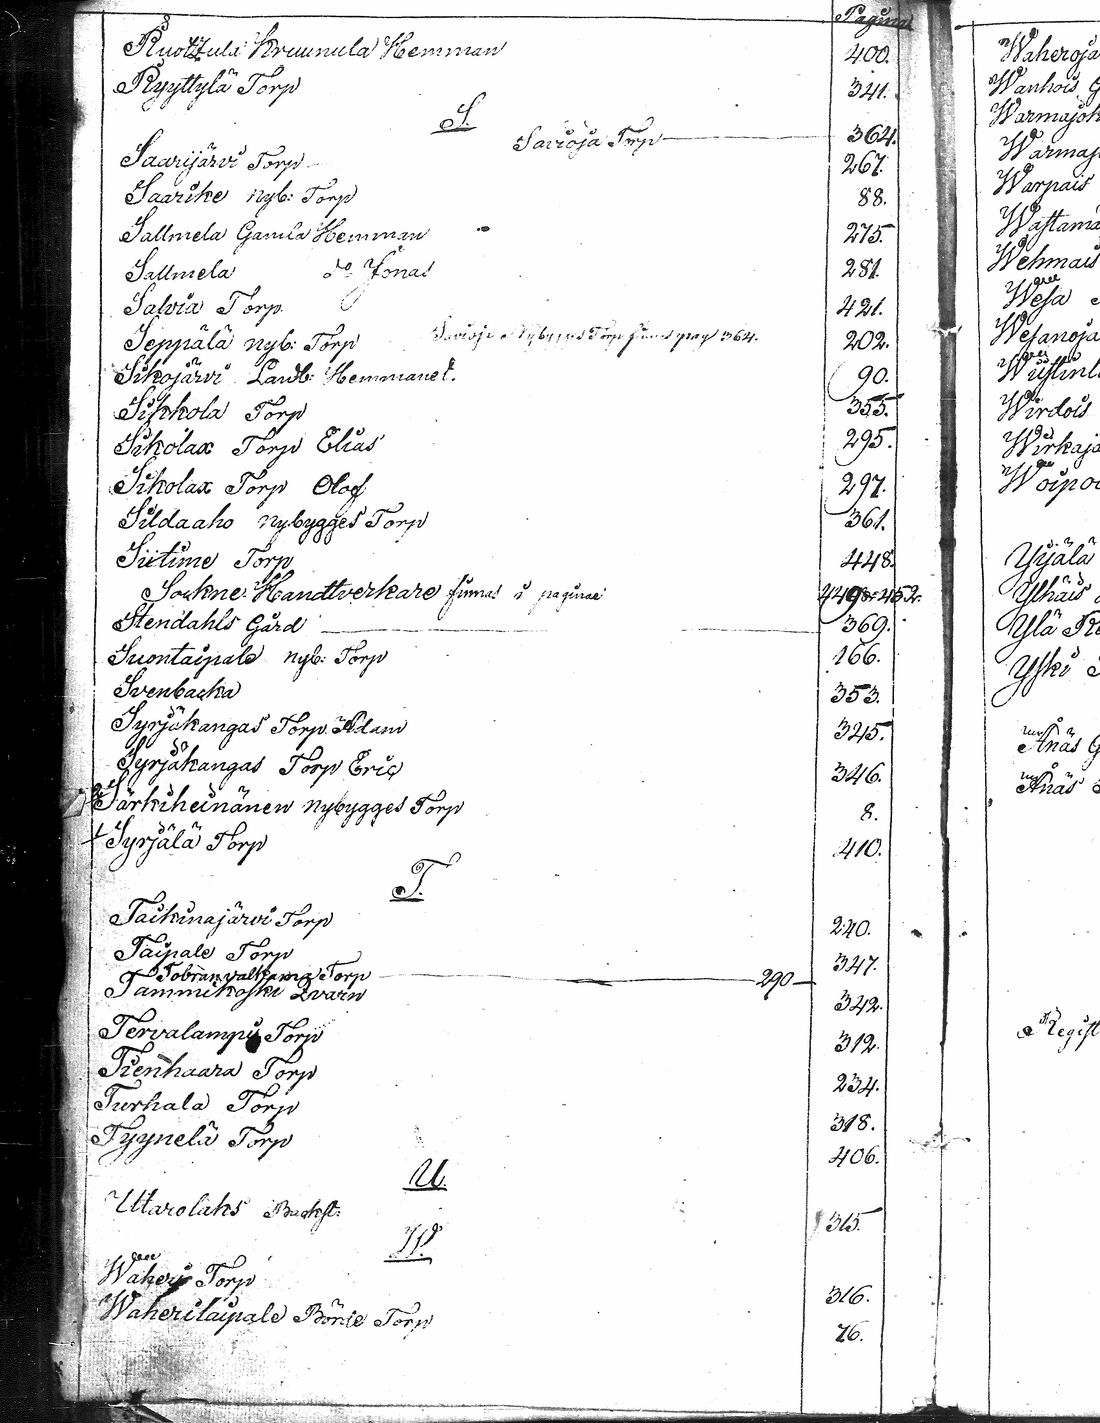 Pagina
Ruottula Kruunula Hemman 400.
Ryyttylä Torp 341.
S.
Savioja Torp 364.
Saarijärvi Torp 267.
Saarike nyb: Torp 88.
Sallmela Gamla Hemman 275.
Sallmela do Jonas 281.
Salvia Torp 421.
Seppälä nyb: Torp 202.
Savioja Nybygges Torp finns pag 364.
Sikojärvi Landb: Hemmanet. 90.
Sikkola Torp 355.
Sikolax Torp Elias 295.
Sikolax Torp Olof 297.
Sildaaho nybygges Torp 361.
Siitime Torp 448.
Sockne Handtverkare finnas i paginae 452.
Stendahls Gård 369.
Suontaipale nyb: Torp 166.
Svenbacka 353.
Syrjäkangas Torp Adam 325.
Syrjäkangas Torp Eric 346.
Särkiheinänen nybygges Torp 8.
Syrjälä Torp 410.
T.
Taikinajärvi Torp 240.
Taipale Torp 347.
Torp 290
Tammikoski Qvarn 342.
Tervalampi Torp 312.
Tienhaara Torp 234.
Turhala Torp 318.
Tyynelä Torp 406.
U.
Uttarolaks Backst: 315
W.
Waheri Torp 316.
Waheritaipale Börje Torp 76.
Waheroja
Wanhois G
Warmajok
Warmaj
Warpais
Wastama
Wehmais
Wesa
Wesanoja
Wirdois
Wirkaja
Woipo
Yijälä
Ylhäis
Ylä
Yski
Änäs G
Änäs
Regist